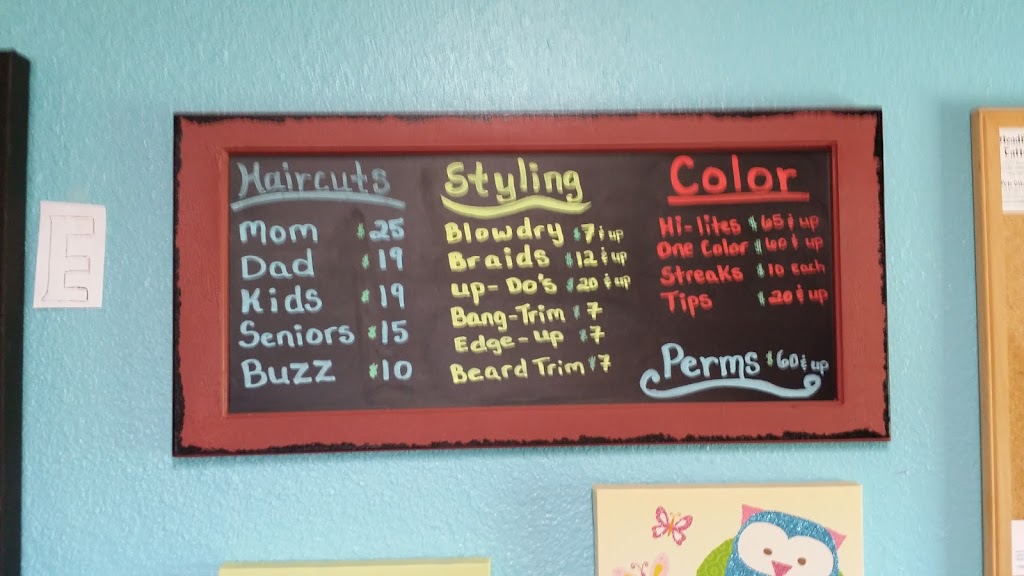 E
Haircuts
Mom $25
Dad $19
Kids $19
Seniors $15
Buzz $10
Styling
Blowdry $7 & up
Braids $12 & up
up-Do's $20 & up
Bang-Trim $7
Edge-up $7
Beard Trim $7
Color
Hi-lites $65 & up
One Color $60 & up
Streaks $10 each
Tips $20 & up
Perms $60 & up